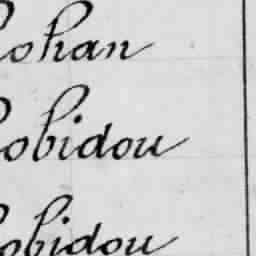 Rohan
Robidou
Robidou